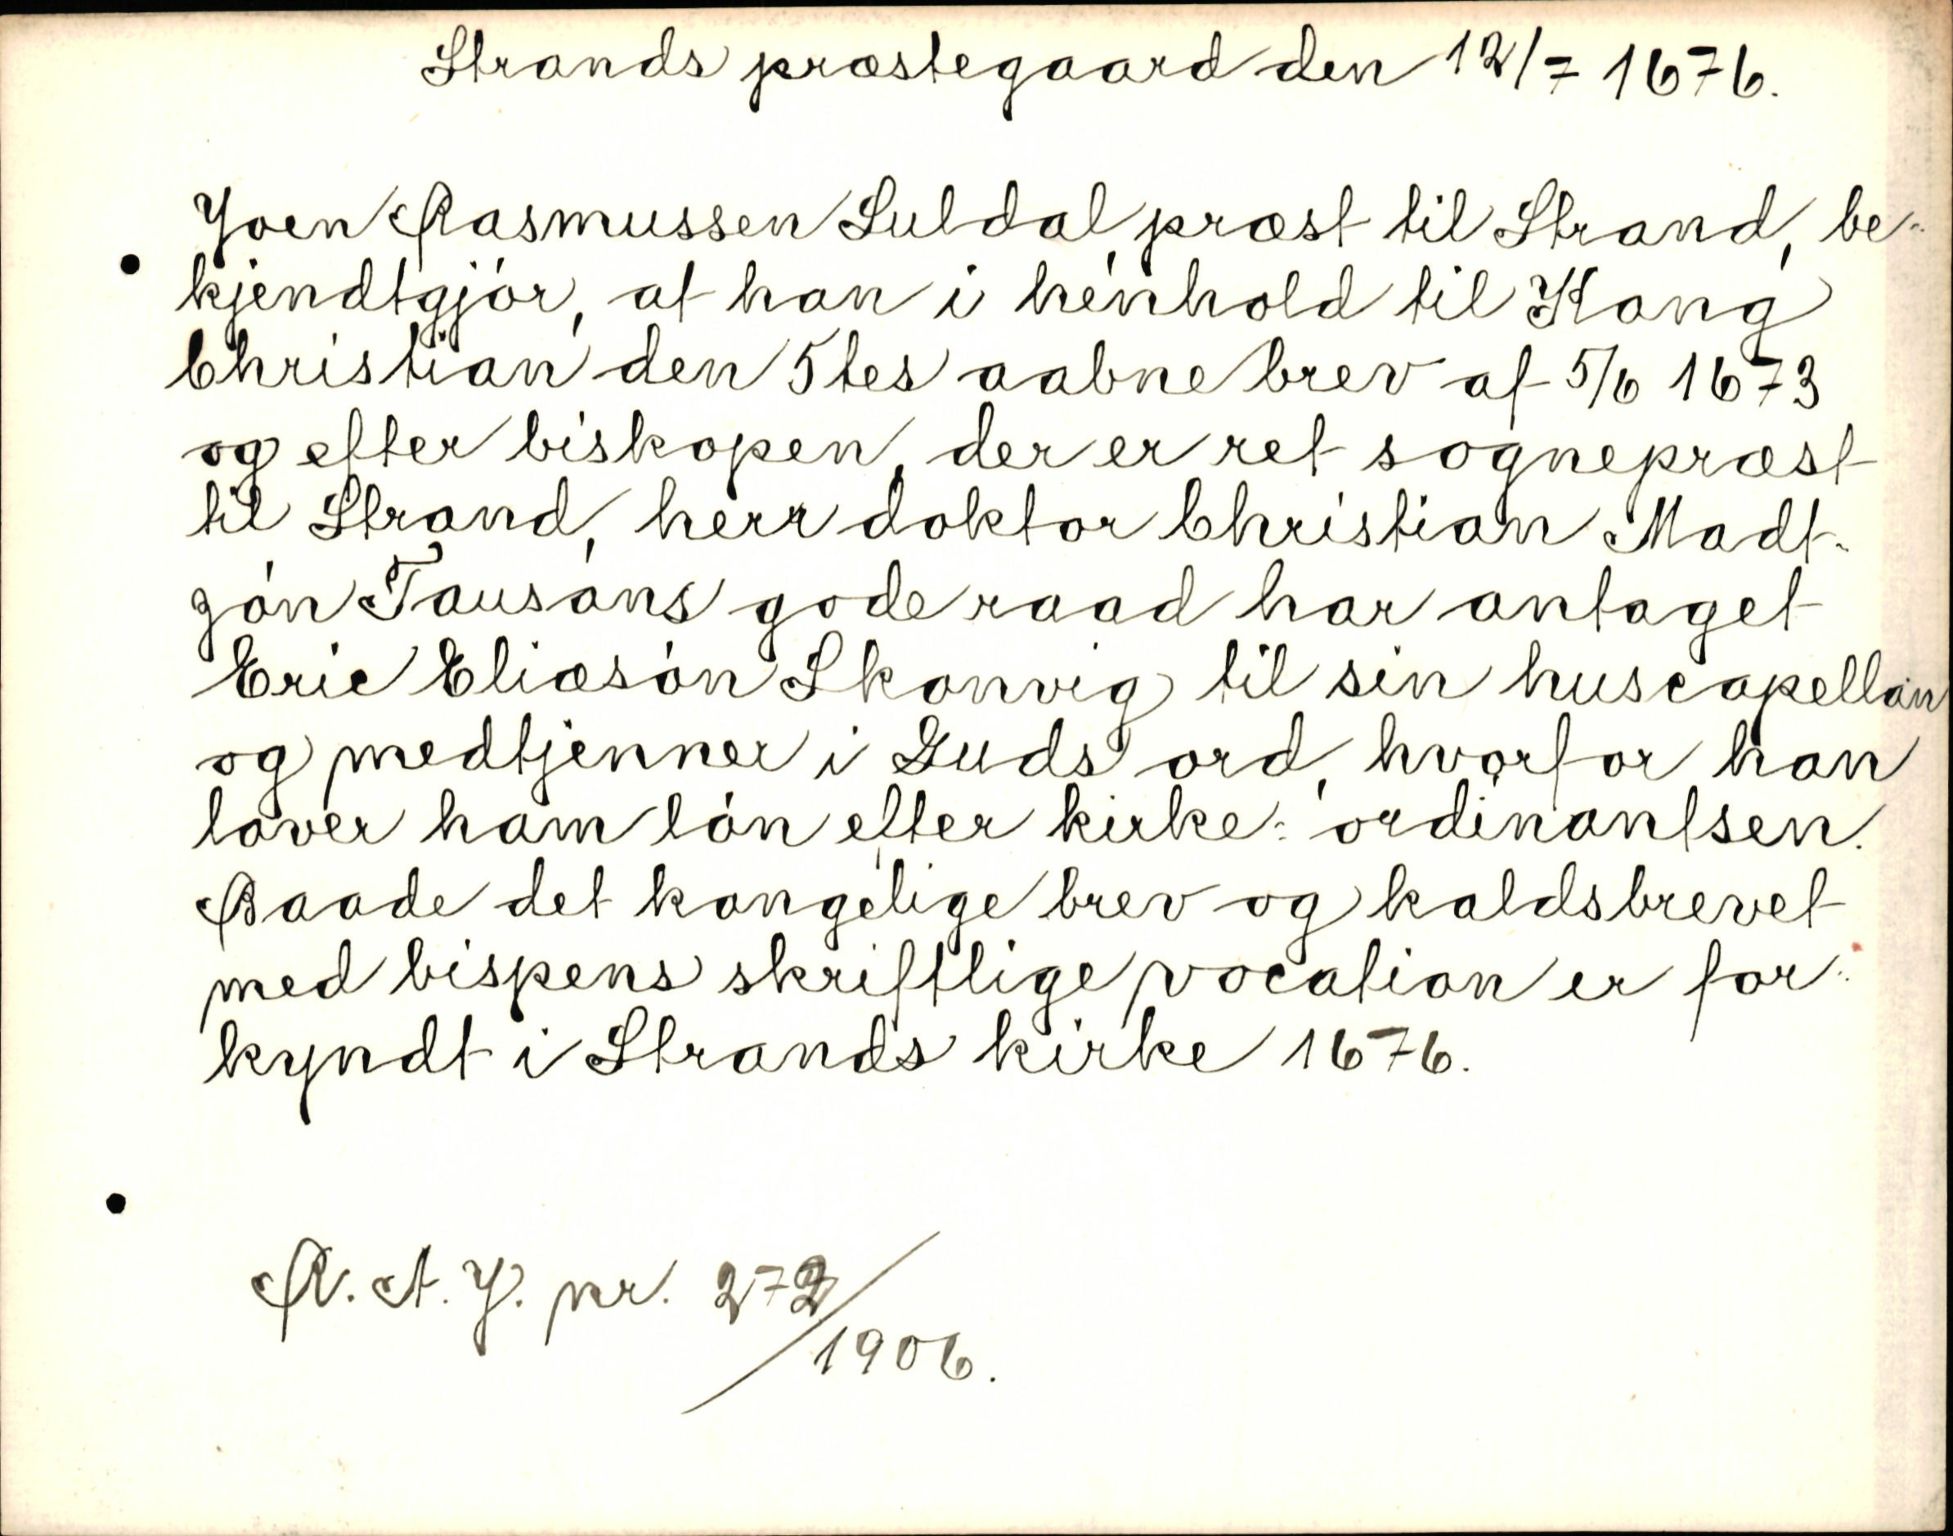 Strands præstegaard den 12/7 1676.
Joen Rasmussen Suldal præst til Strand, be-
kjendtgjór, at han i henhold til Kong
Christian den 5tes aabne brev af 5/6 1673
og efter biskopen, der er ret sognepræst
til Strand, herr doktor Christian Madt-
zón Tausans gode raad har antaget
Eric Eliæsón Skonvig til sin huscapellan
og medtjenner i Guds ord, hvorfor han
lover ham lón efter kirke-ordinantsen.
Baade det kongelige brev og kaldsbrevet
med bispens skriftlige vocation er for-
kyndt i Strands kirke 1676.
R. A. J. nr. 272/
1906.